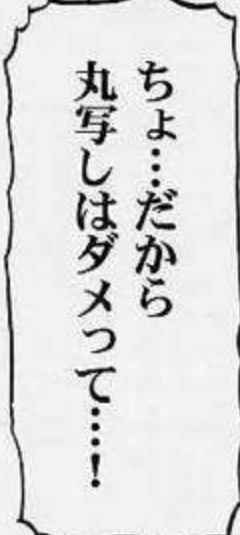 ちょ…だから
丸写しはダメって…！